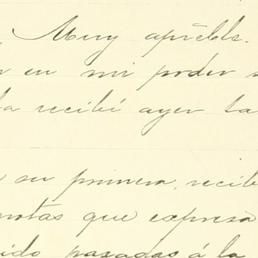 Muy apréble.
en mi poder
la recibí ayer la
su primera, recib
notas que expresa
ido pasadas á la